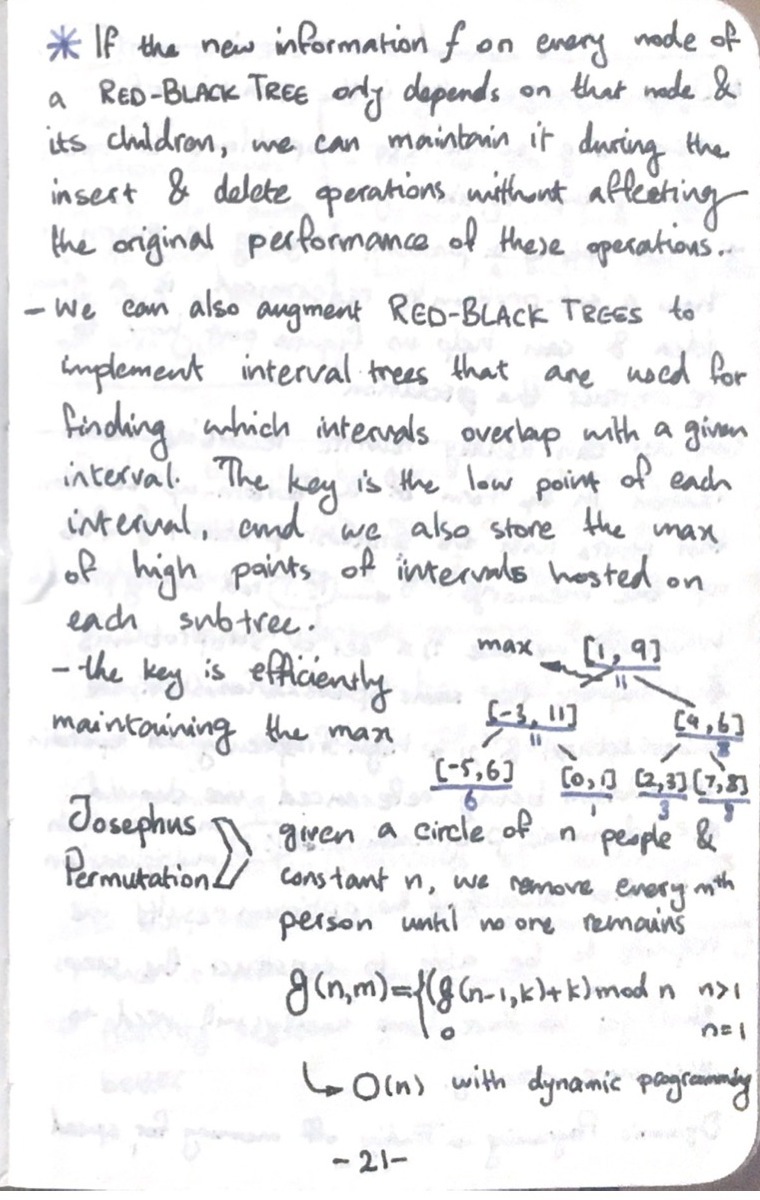 * If the new information f on every node of
a RED-BLACK TREE only depends on that node &
its children, we can maintain it during the
insert & delete operations without affecting
the original performance of these operations..
- We can also augment RED-BLACK TREES to
implement interval trees that are used for
finding which intervals overlap with a given
interval. The key is the low point of each
interval, and we also store the max
of high points of intervals hosted on
each subtree.
max [1, 9]
11
- the key is efficiently
[-3, 11] [4, 6]
11 8
maintaining the max
[-5, 6] [0, 1] [2,3] [7,8]
6 1 3 8
Josephus
Permutation
given a circle of n people &
constant n, we remove every mth
person until no one remains
g(n,m)={(g(n-1,k)+k) mod n n>1
0 n=1
↳ O(n) with dynamic programming
-21-